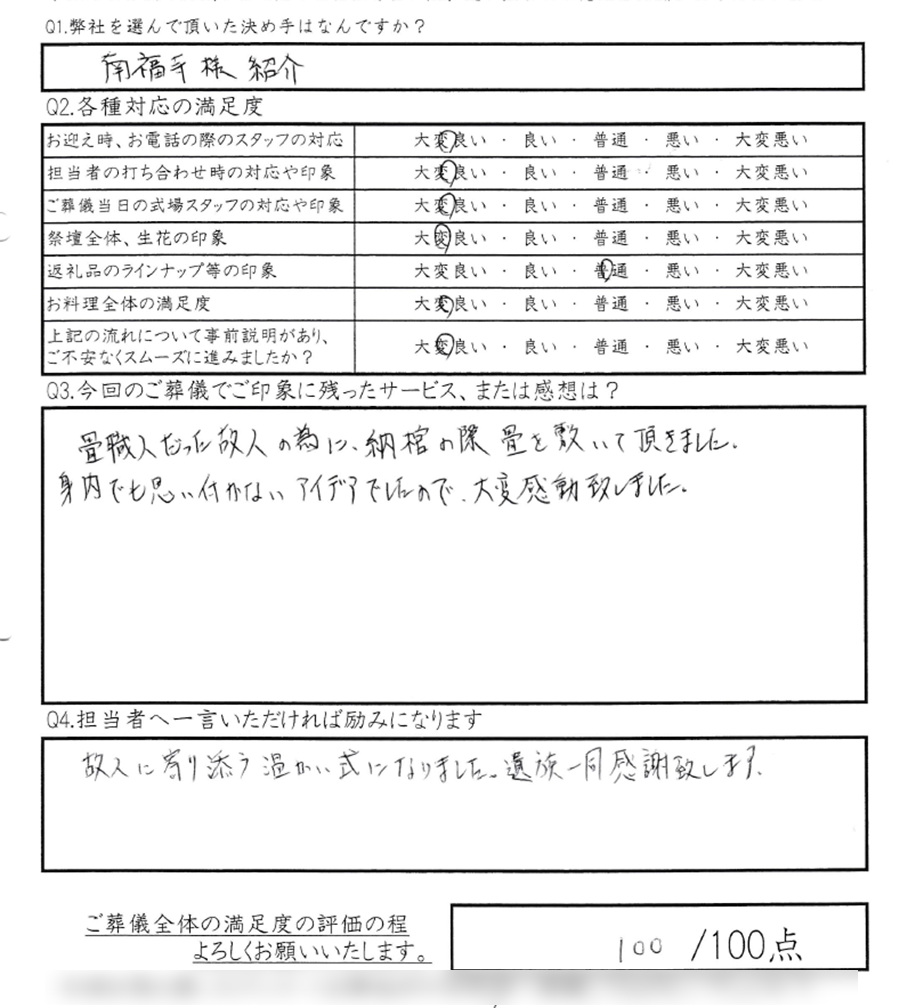 Q1.弊社を選んで頂いた決め手はなんですか？
南福寺様 紹介
Q2.各種対応の満足度
お迎え時、お電話の際のスタッフの対応 大変良い ・ 良い ・ 普通 ・ 悪い ・ 大変悪い
担当者の打ち合わせ時の対応や印象 大変良い ・ 良い ・ 普通 ・ 悪い ・ 大変悪い
ご葬儀当日の式場スタッフの対応や印象 大変良い ・ 良い ・ 普通 ・ 悪い ・ 大変悪い
祭壇全体、生花の印象 大変良い ・ 良い ・ 普通 ・ 悪い ・ 大変悪い
返礼品のラインナップ等の印象 大変良い ・ 良い ・ 普通 ・ 悪い ・ 大変悪い
お料理全体の満足度 大変良い ・ 良い ・ 普通 ・ 悪い ・ 大変悪い
上記の流れについて事前説明があり、
ご不安なくスムーズに進みましたか？ 大変良い ・ 良い ・ 普通 ・ 悪い ・ 大変悪い
Q3.今回のご葬儀でご印象に残ったサービス、または感想は？
畳職人だった故人の為に、納棺の際 畳を敷いて頂きました。
身内でも思い付かないアイデアでしたので、大変感動致しました。
Q4.担当者へ一言いただければ励みになります
故人に寄り添う温かい式になりました。遺族一同感謝致します。
ご葬儀全体の満足度の評価の程
よろしくお願いいたします。
100 /100点